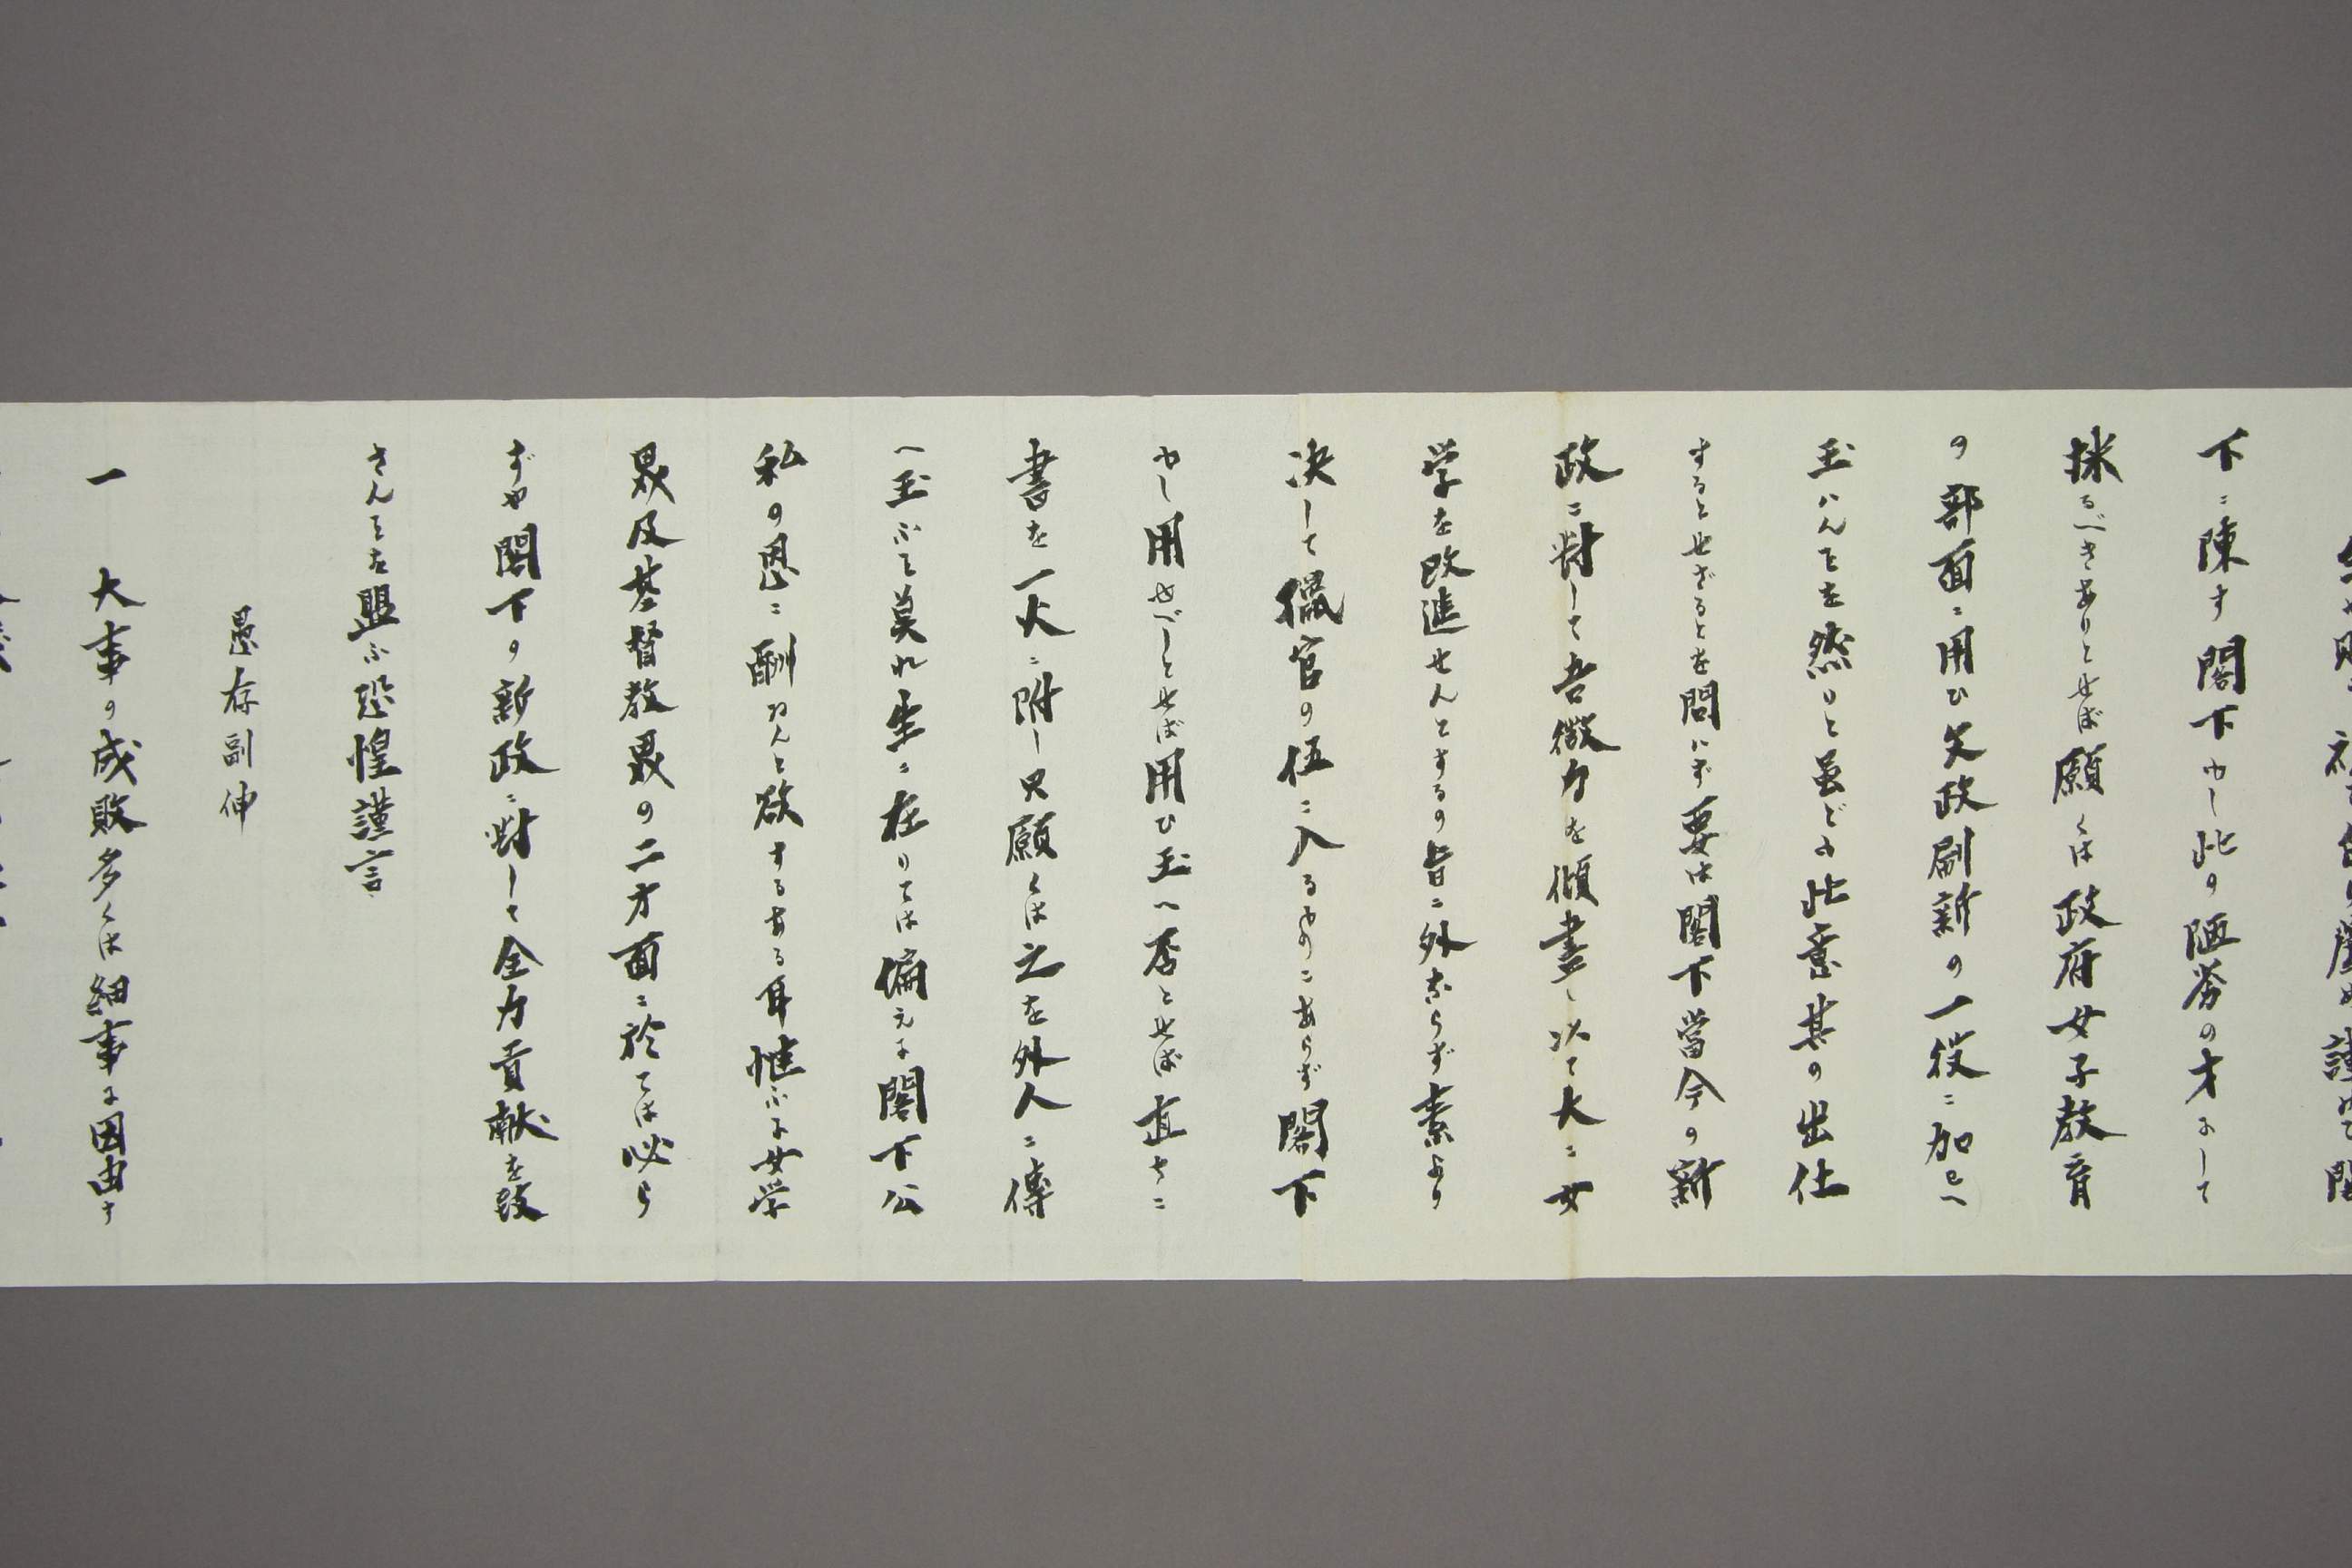 下ニ陳す閣下もし此の陋劣の才にして
採るべきありとせば願くは政府女子教育
の部面ニ用ひ文政刷新の一役ニ加ヒへ
玉ハんことを然りと虽ども此意其の出仕
するとせざるとを問ハず要は閣下當今の新
政ニ対して吾微力を傾盡し以て大ニ女
学を改進せんとするの旨ニ外ならず素より
决して獵官の伍ニ入るものニあらず閣下
もし用ゆべしとせば用ひ玉へ否とせば直ちニ
書を一火ニ附し只願くは之を外人ニ傳
へ玉ふこと莫れ生ニ在りては偏えに閣下公
私の恩ニ酬ヰんと欲するある耳惟ふに女学
界及基督教界の二方面ニ於ては必ら
ずや閣下の新政ニ対して全力貢献を致
さんことを盟ふ恐惶謹言
愚存副伸
一 大事の成敗多くは細事に因由す